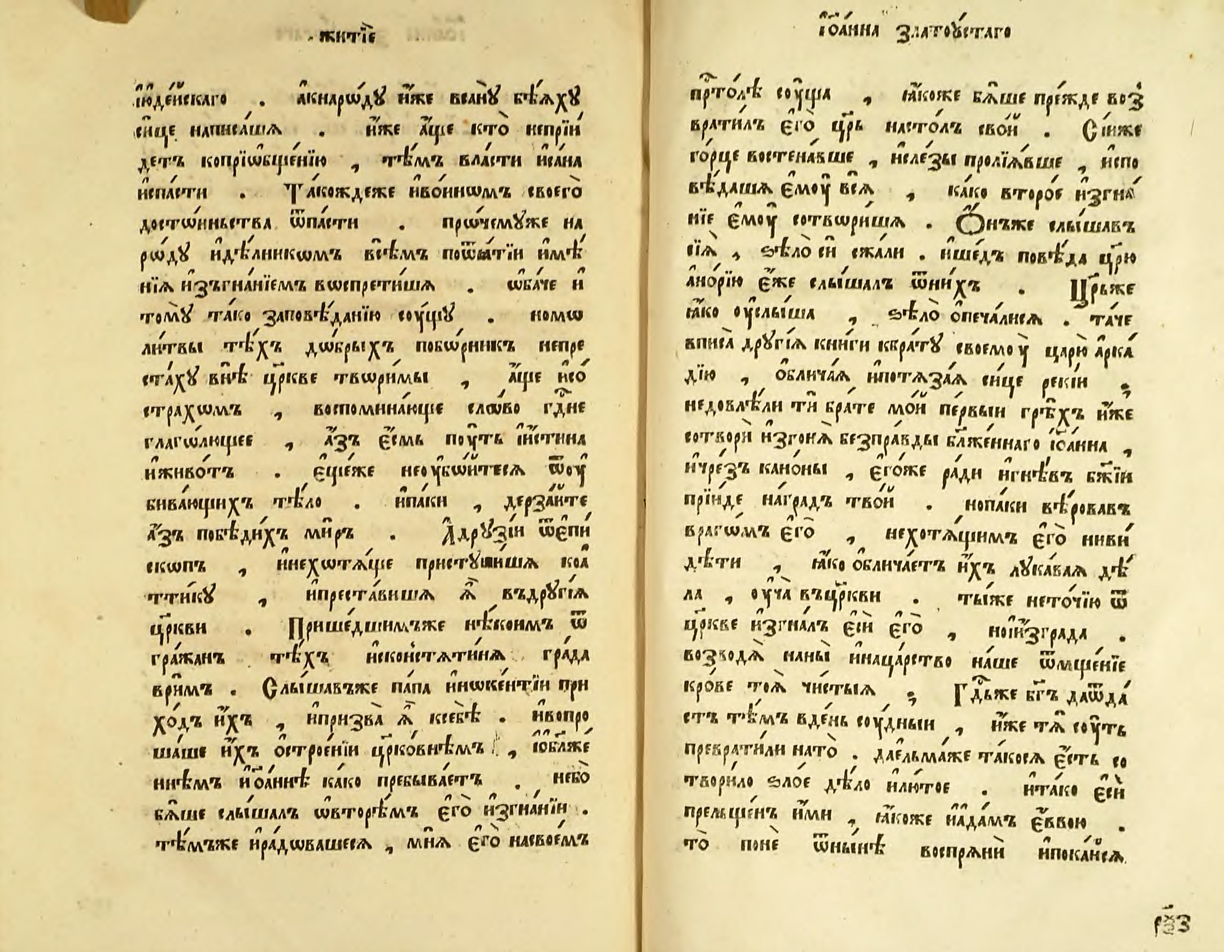 житїе
їꙋде́йскаго . акнаро́дꙋ и́же всанꙋ̀ бѣ́ахꙋ
сице написа́шѧ . и́же а́ще кто̀ непрїи
детъ копрїѡбще́нїю , тѣ́мъ вла́сти иса́на
испа́сти . Та́кождеже ивои́нѡмъ своего̀
досто́иньства ѿпа́сти . прѡ́чемꙋже на
рѡ́дꙋ идѣ́лникѡмъ всѣ́мъ поѿѧ́тїи имѣ́
нїѧ изъгна́нїемъ вѡспрети́шѧ . ѡба́че и
томꙋ̀ та́ко заповѣ́данїю сꙋ́щꙋ . номѡ
ли́твы тѣ́хъ дѡ́брыхъ побо́рникъ непре
ста́хꙋ внѣ̀ цр҃кве твѡри́мы , а́ще исо́
стра́хомъ , воспомина́юще сло́во гдⷭ҇не
глаго́лющее , а́зъ є́смь поу́ть и́стина
иживо́тъ . є҆ще́же неоубо́йтесѧ ѿоу
бива́ющихъ тѣ́ло . ипа́ки , дерза́йте
а́зъ побѣди́хъ ми́ръ . Адрꙋзі́и ѿе҆пи́
скѡпъ , инехѡтѧ́ще пристꙋпи́шѧ коа҆́
ттикꙋ , ипреста́вишѧ ѧ҆̀ въдрꙋгі́ѧ
цр҃кви . Прише́дшимъже нѣ́коимъ ѿ
гра́жанъ тѣ́хъ исконстѧти́нѧ гра́да
врим́ъ . Слы́шавъже па́па инокéнтїи при
хо́дъ и҆́хъ , ипризва̀ ѧ҆̀ ксебѣ̀ . ивопро
ша́ше и҆́хъ острое́нїи цр҃ко́внѣмъ , іѡбл҃же́
ннѣмъ иѡа́ннѣ ка́ко пребыва́етъ . небо̀
бѧ́ше слы́шалъ ѡвторѣ́мъ є҆го̀ изгна́нїи .
тѣ́мъже ира́довашесѧ , мнѧ̀ є҆го̀ насвое́мъ
їѡа́нна златоу́стаго
прⷭ҇то́лѣ соу́ща , ꙗ҆́коже бѧ́ше пре́жде воз
врати́лъ є҆го̀ цр҃ь насто́лъ сво́й . Сїи́же
го́рце востена́вше , исле́зы пролїѧ́вше , испо
вѣ́дашѧ є҆моу̀ всѧ̀ , ка́ко второ́е изгна́
нїе є҆моу̀ сотвори́шѧ . Ѻ҆нъже слы́шавъ
сїѧ̀ , ѕѣлѡ̀ си сжа́ли . ише́дъ повѣ́да цр҃ю
ано́рїю є҆́же слы́шалъ ѿни́хъ . Цр҃ьже
ꙗ҆́ко оуслы́ша , ѕѣло̀ опеча́лисѧ . та́че
вписа̀ дрꙋгі́ѧ кни́ги кбра́тꙋ своемоу̀ царю̀ арка́
дїю , облича́ѧ ипотѧза́ѧ си́це реки́й ,
недовлѣ́ли тѝ бра́те мо́й пе́рвыи грѣ́хъ и҆́же
сотворѝ изгонѧ̀ безпра́вды бл҃же́ннаго їѡа́нна ,
ичре́зъ кано́ны , є҆го́же ра́ди игнѣ́въ бж҃їи
прїи́де награ́дъ тво́й . нопа́ки вѣ́ровавъ
враго́мъ є҆го̀ , нехотѧ́щимъ є҆го̀ ниви́
дѣти , ꙗ҆́ко облича́етъ и҆́хъ лꙋка́ваѧ дѣ́
ла , оуча̀ въцр҃кви . ты́же нето́чїю ѿ
цр҃кве изгна́лъ є҆сѝ є҆го̀ , ноиизгра́да .
возводѧ̀ на́ны ина́царство на́ше ѿмще́нїе
кро́ве тоѧ̀ чи́стыѧ , Гдⷭ҇ьже бг҃ъ даѿда́
стъ тѣ́мъ вде́нь соу́дныи , и҆́же тѧ̀ соу́ть
преврати́ли нато̀ . дае́льма́же та́косѧ є҆́сть со
твори́ло ѕло́е дѣ́ло илю́тое . ита́ко є҆сѝ
прельще́нъ и҆́ми , ꙗ҆́коже иада́мъ є҆́ввою .
то̀ понѐ ѿны́нѣ воспрѧнѝ ипока́йсѧ